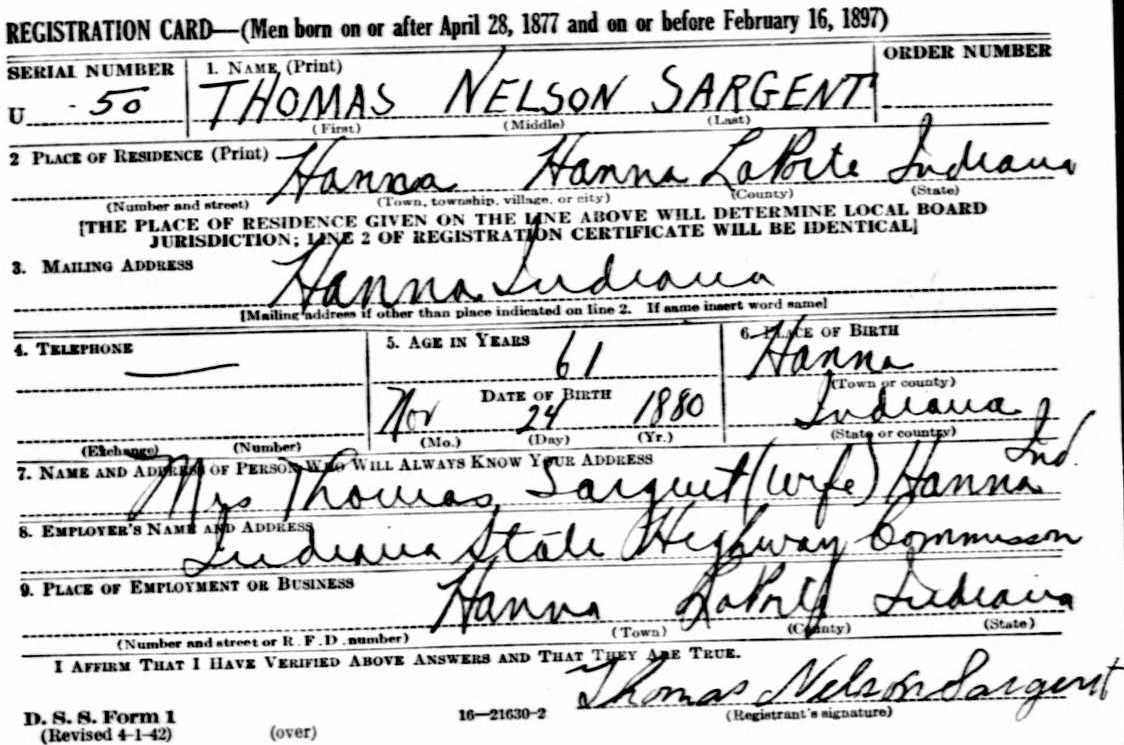 REGISTRATION CARD—(Men born on or after April 28, 1877 and on or before February 16, 1897)
SERIAL NUMBER 1. NAME (Print) ORDER NUMBER
U 50 THOMAS NELSON SARGENT
(First) (Middle) (Last)
2 PLACE OF RESIDENCE (Print)
Hanna Hanna LaPorte Indiana
(Number and street) (Town, township, village, or city) (County) (State)
[THE PLACE OF RESIDENCE GIVEN ON THE LINE ABOVE WILL DETERMINE LOCAL BOARD
JURISDICTION; LINE 2 OF REGISTRATION CERTIFICATE WILL BE IDENTICAL]
3. MAILING ADDRESS
Hanna Indiana
[Mailing address if other than place indicated on line 2. If same insert word same]
4. TELEPHONE 5. AGE IN YEARS 6. PLACE OF BIRTH
— 61 Hanna
(Town or county)
DATE OF BIRTH
Nov 24 1880 Indiana
(Exchange) (Number) (Mo.) (Day) (Yr.) (State or country)
7. NAME AND ADDRESS OF PERSON WHO WILL ALWAYS KNOW YOUR ADDRESS
Mrs Thomas Sargent (wife) Hanna Ind.
8. EMPLOYER'S NAME AND ADDRESS
Indiana State Highway Commisson
9. PLACE OF EMPLOYMENT OR BUSINESS
Hanna LaPorte Indiana
(Number and street or R. F. D. number) (Town) (County) (State)
I AFFIRM THAT I HAVE VERIFIED ABOVE ANSWERS AND THAT THEY ARE TRUE.
Thomas Nelson Sargent
D. S. S. Form 1 16—21630-2 (Registrant's signature)
(Revised 4-1-42) (over)